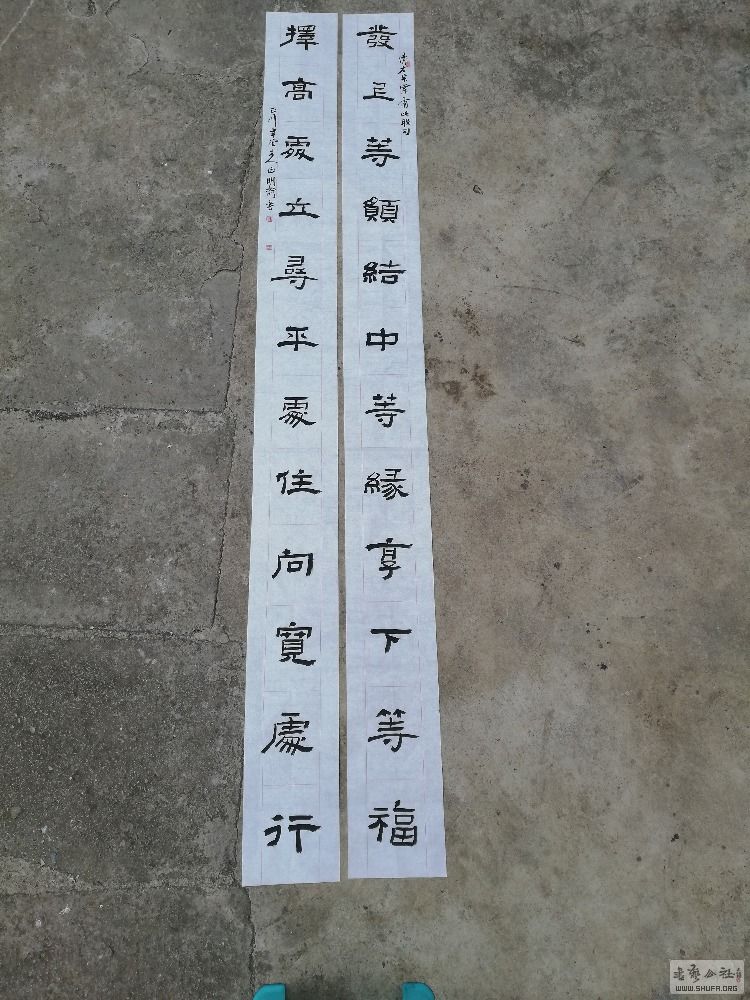 發上等願結中等緣享下等福
清左宗棠
擇高處立尋平處住向寬處行
书法公社
WWW.SHUFA.ORG